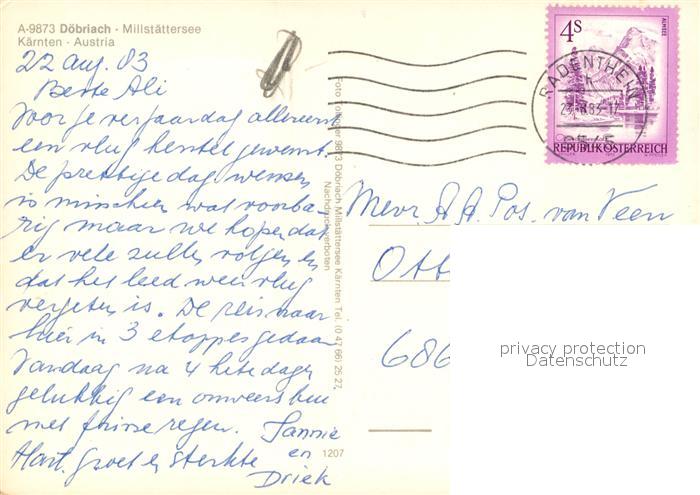 A-9873 Döbriach · Millstättersee
Kärnten · Austria
22 aug. 83
Beste Ali
Voor je verjaardag allereerst
een vlug herstel gewenst.
De prettige dag wensen
is misschien wat voorba-
rig maar we hopen dat
er vele zullen volgen en
dat het leed weer vlug
vergeten is. De reis naar
hier in 3 etappes gedaan
Vandaag na 4 hete dagen
gelukkig een onweersbui
met forse regen.
Hart. groet en sterkte
Jannie
en
Driek
1207
9873 Döbriach Millstättersee Kärnten Tel. (0 47 66) 25 27,
Nachdruck verboten
4S
ALMSEE
REPUBLIK ÖSTERREICH
RADENTHEIN
9545
Mevr. A. A. Pos. van Veen
Ott
686
privacy protection
Datenschutz